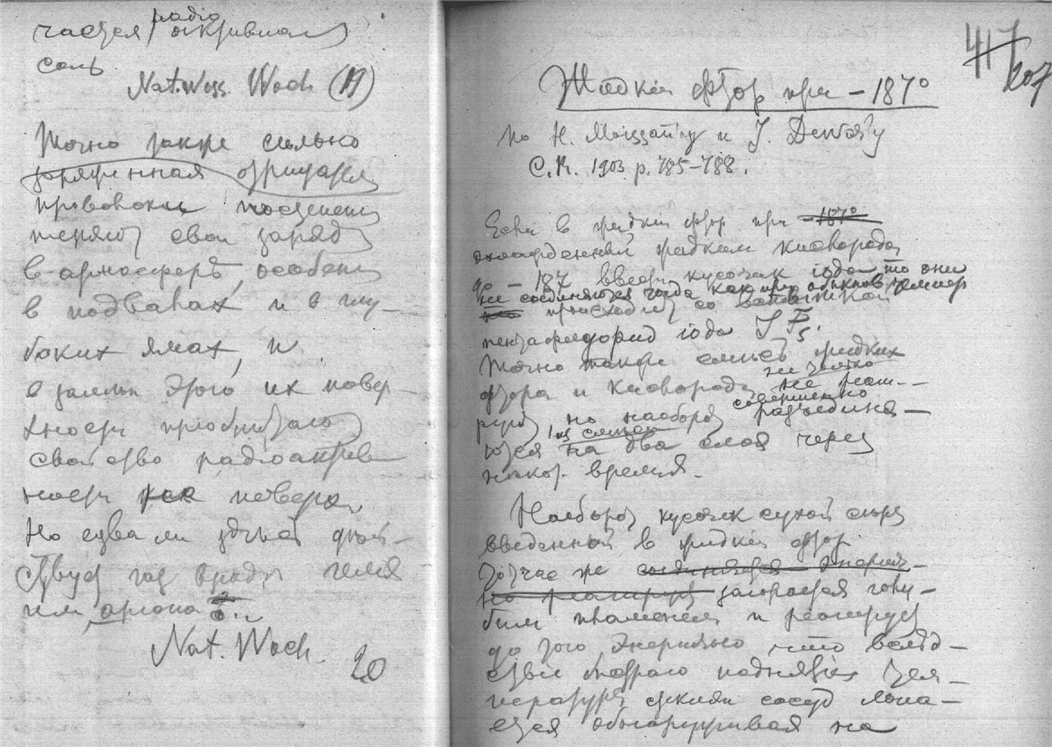 чается радіоактивная
соль
Nat. Wiss. Woch (19)
Точно также сильно
заряженная отрицател
проволока постепен
теряют свои заряды
в атмосферѣ, особен
в подвалах и в глу-
боких ямах, и
в замѣн этого их повер-
хности приобрѣтают
свойство радіоактив
ности поверх.
Но едва ли здѣсь дѣй-
ствует газ вродѣ гелія
или аргона
Nat. Woch.
20
417
207
Жидкій фтор при – 187°
по H. Moissan'у и J. Dewar'у
C.R. 1903 p. 785–788.
Если в жидкій фтор при – 187°
охлажденный жидким кислородом
до – 187 ввести кусочек іода то они
не соединяются тогда как при обыкнов. темпер
происходит со вспышкой
пентафторид іода J F₅.
Точно также смесь жидких
фтора и кислорода не только не реаги-
рует но наоборот совершенно разъединя-
ются на два слоя через
некот. время.
Наоборот кусочек сухой сѣры
введенной в жидкій фтор
тотчас же соединяется энергич-
но реагирует загорается голу-
бым пламенем и реагирует
до того энергично что вслѣд-
ствіи быстраго поднятія тем-
пературы, сосуд лопа-
ется обнаруживая на